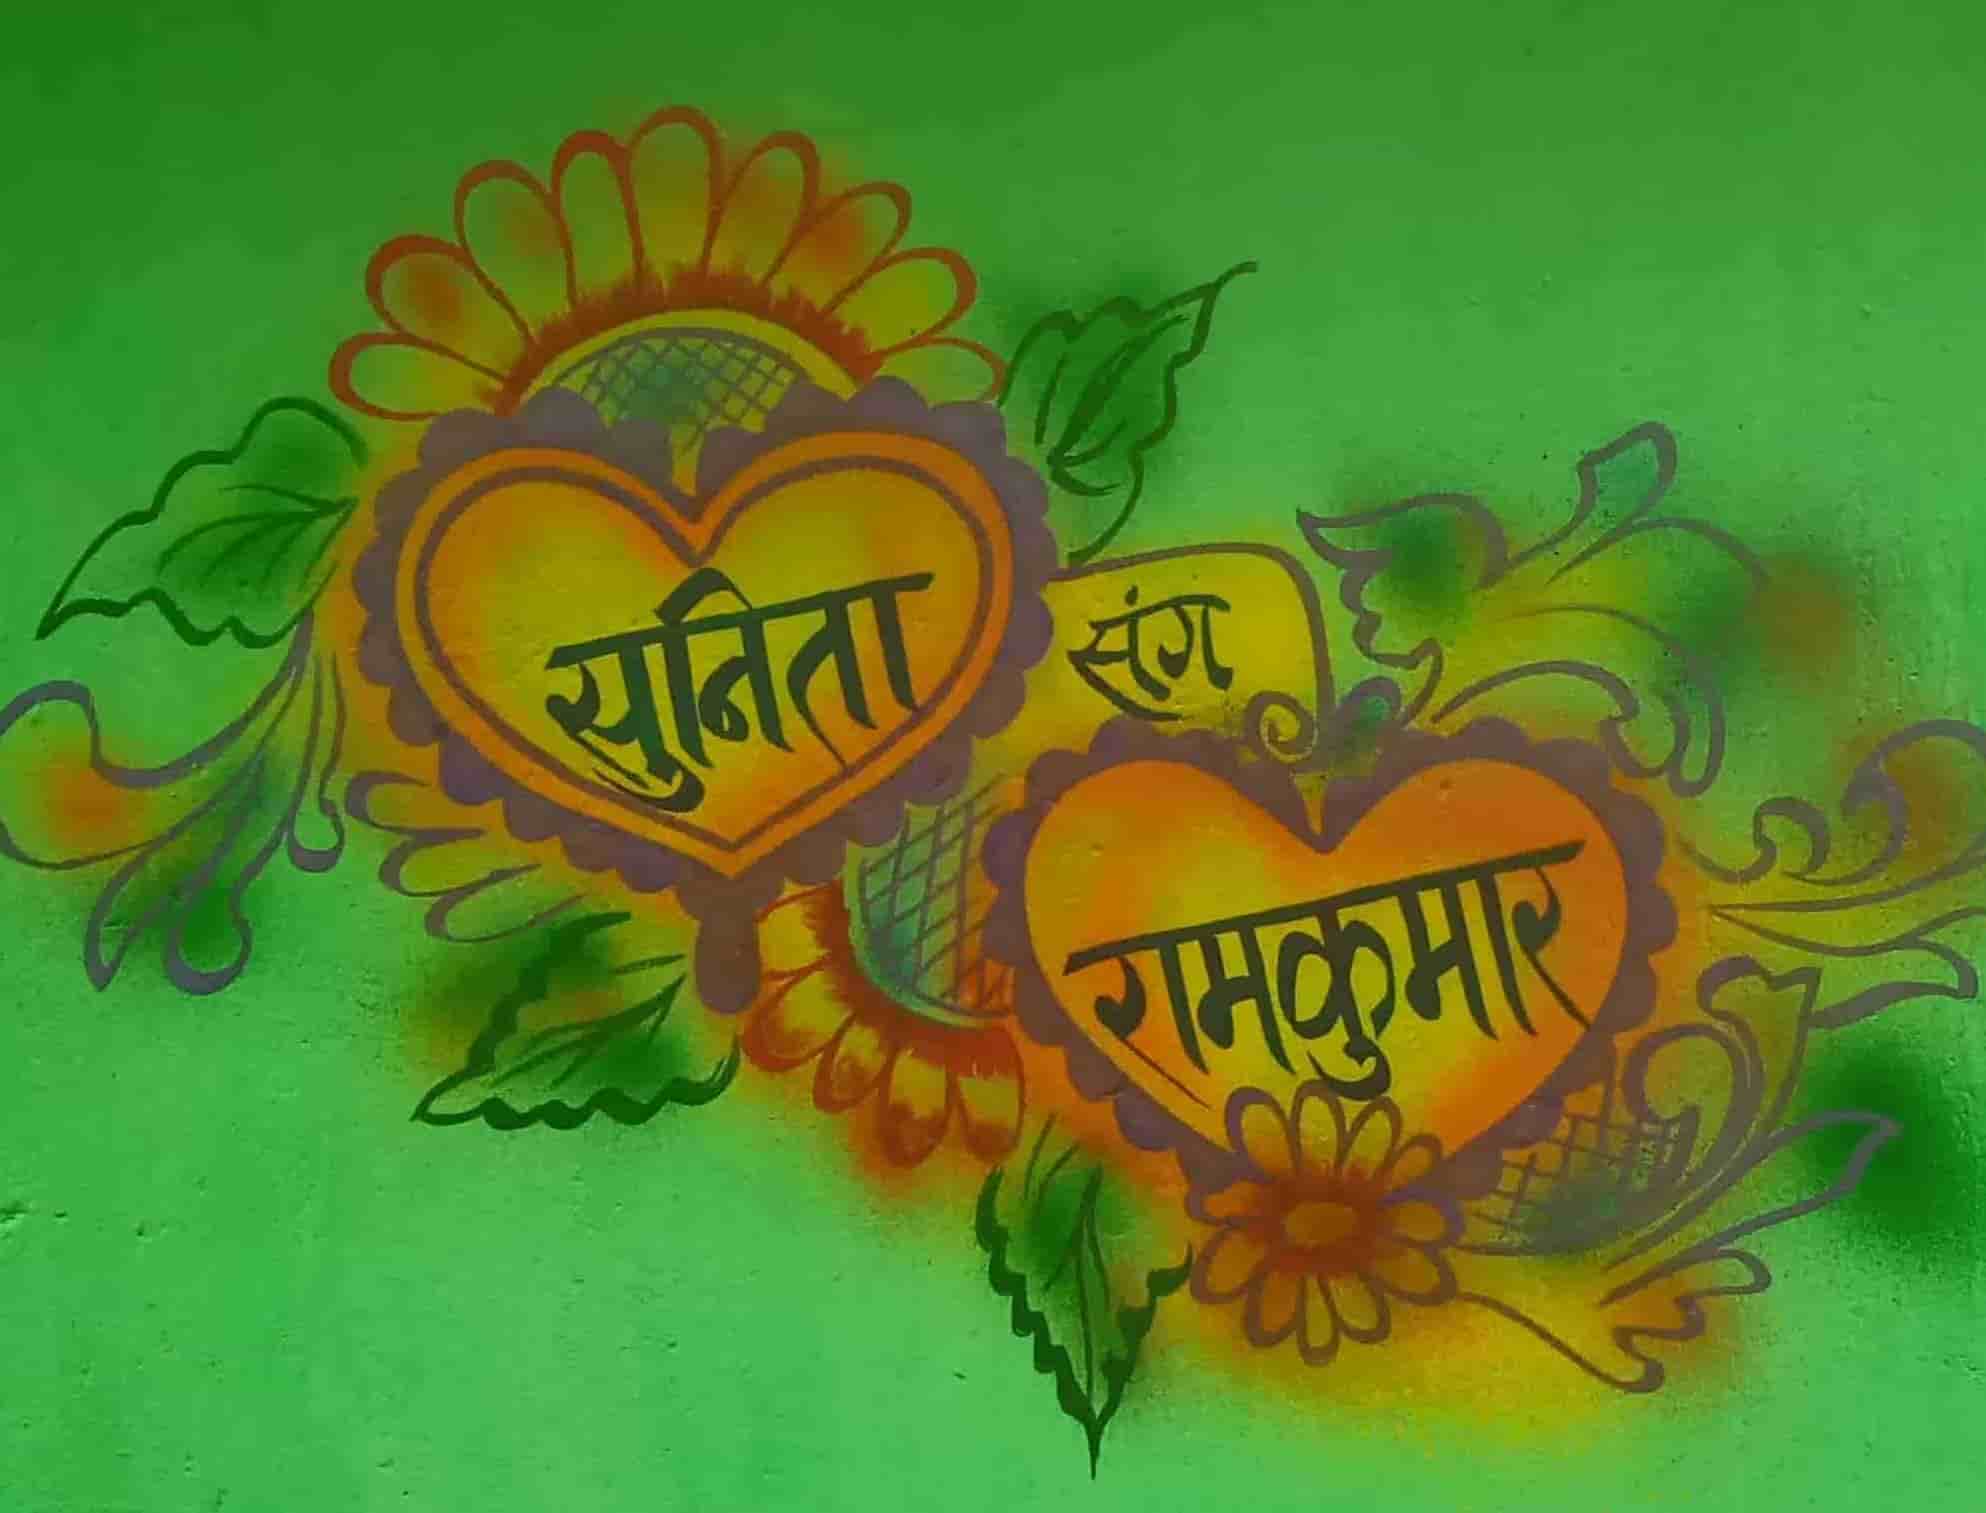 सुनिता
संग
रामकुमार